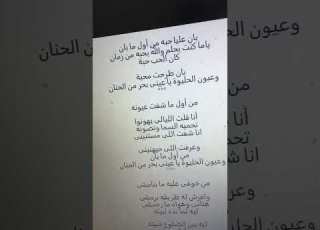 بان عليا حبه من أول ما بان
ياما كنت بحلم والله بحبه من زمان
كان الحب حبة
بان طرحت محبة
وعيون الحليوة يا عيني بحر من الحنان
***
من أول ما شفت عيونه
أنا قلت الليالي يهونوا
تحميه السما وتصونه
أنا شفت اللي مستنيني
وعرفت اللي جيهنيني
من أول ما بان
وعيون الحليوة يا عيني بحر من الحنان
من خوفي عليه ما بنامش
واعرفش له طريقه
وهواه ما
ليه
ليه بين الضلوع
وعيون
الحنان